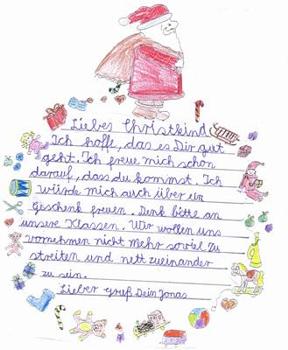 Liebes Christkind
Ich hoffe, das es Dir gut
geht. Ich freue mich schon
darauf, dass du kommst. Ich
würde mich auch über ein
Geschenk freuen. Denk bitte an
unsere Klassen. Wir wollen uns
vornehmen nicht mehr soviel zu
streiten und nett zueinander
zu sein.
Lieber Gruß Dein Jonas